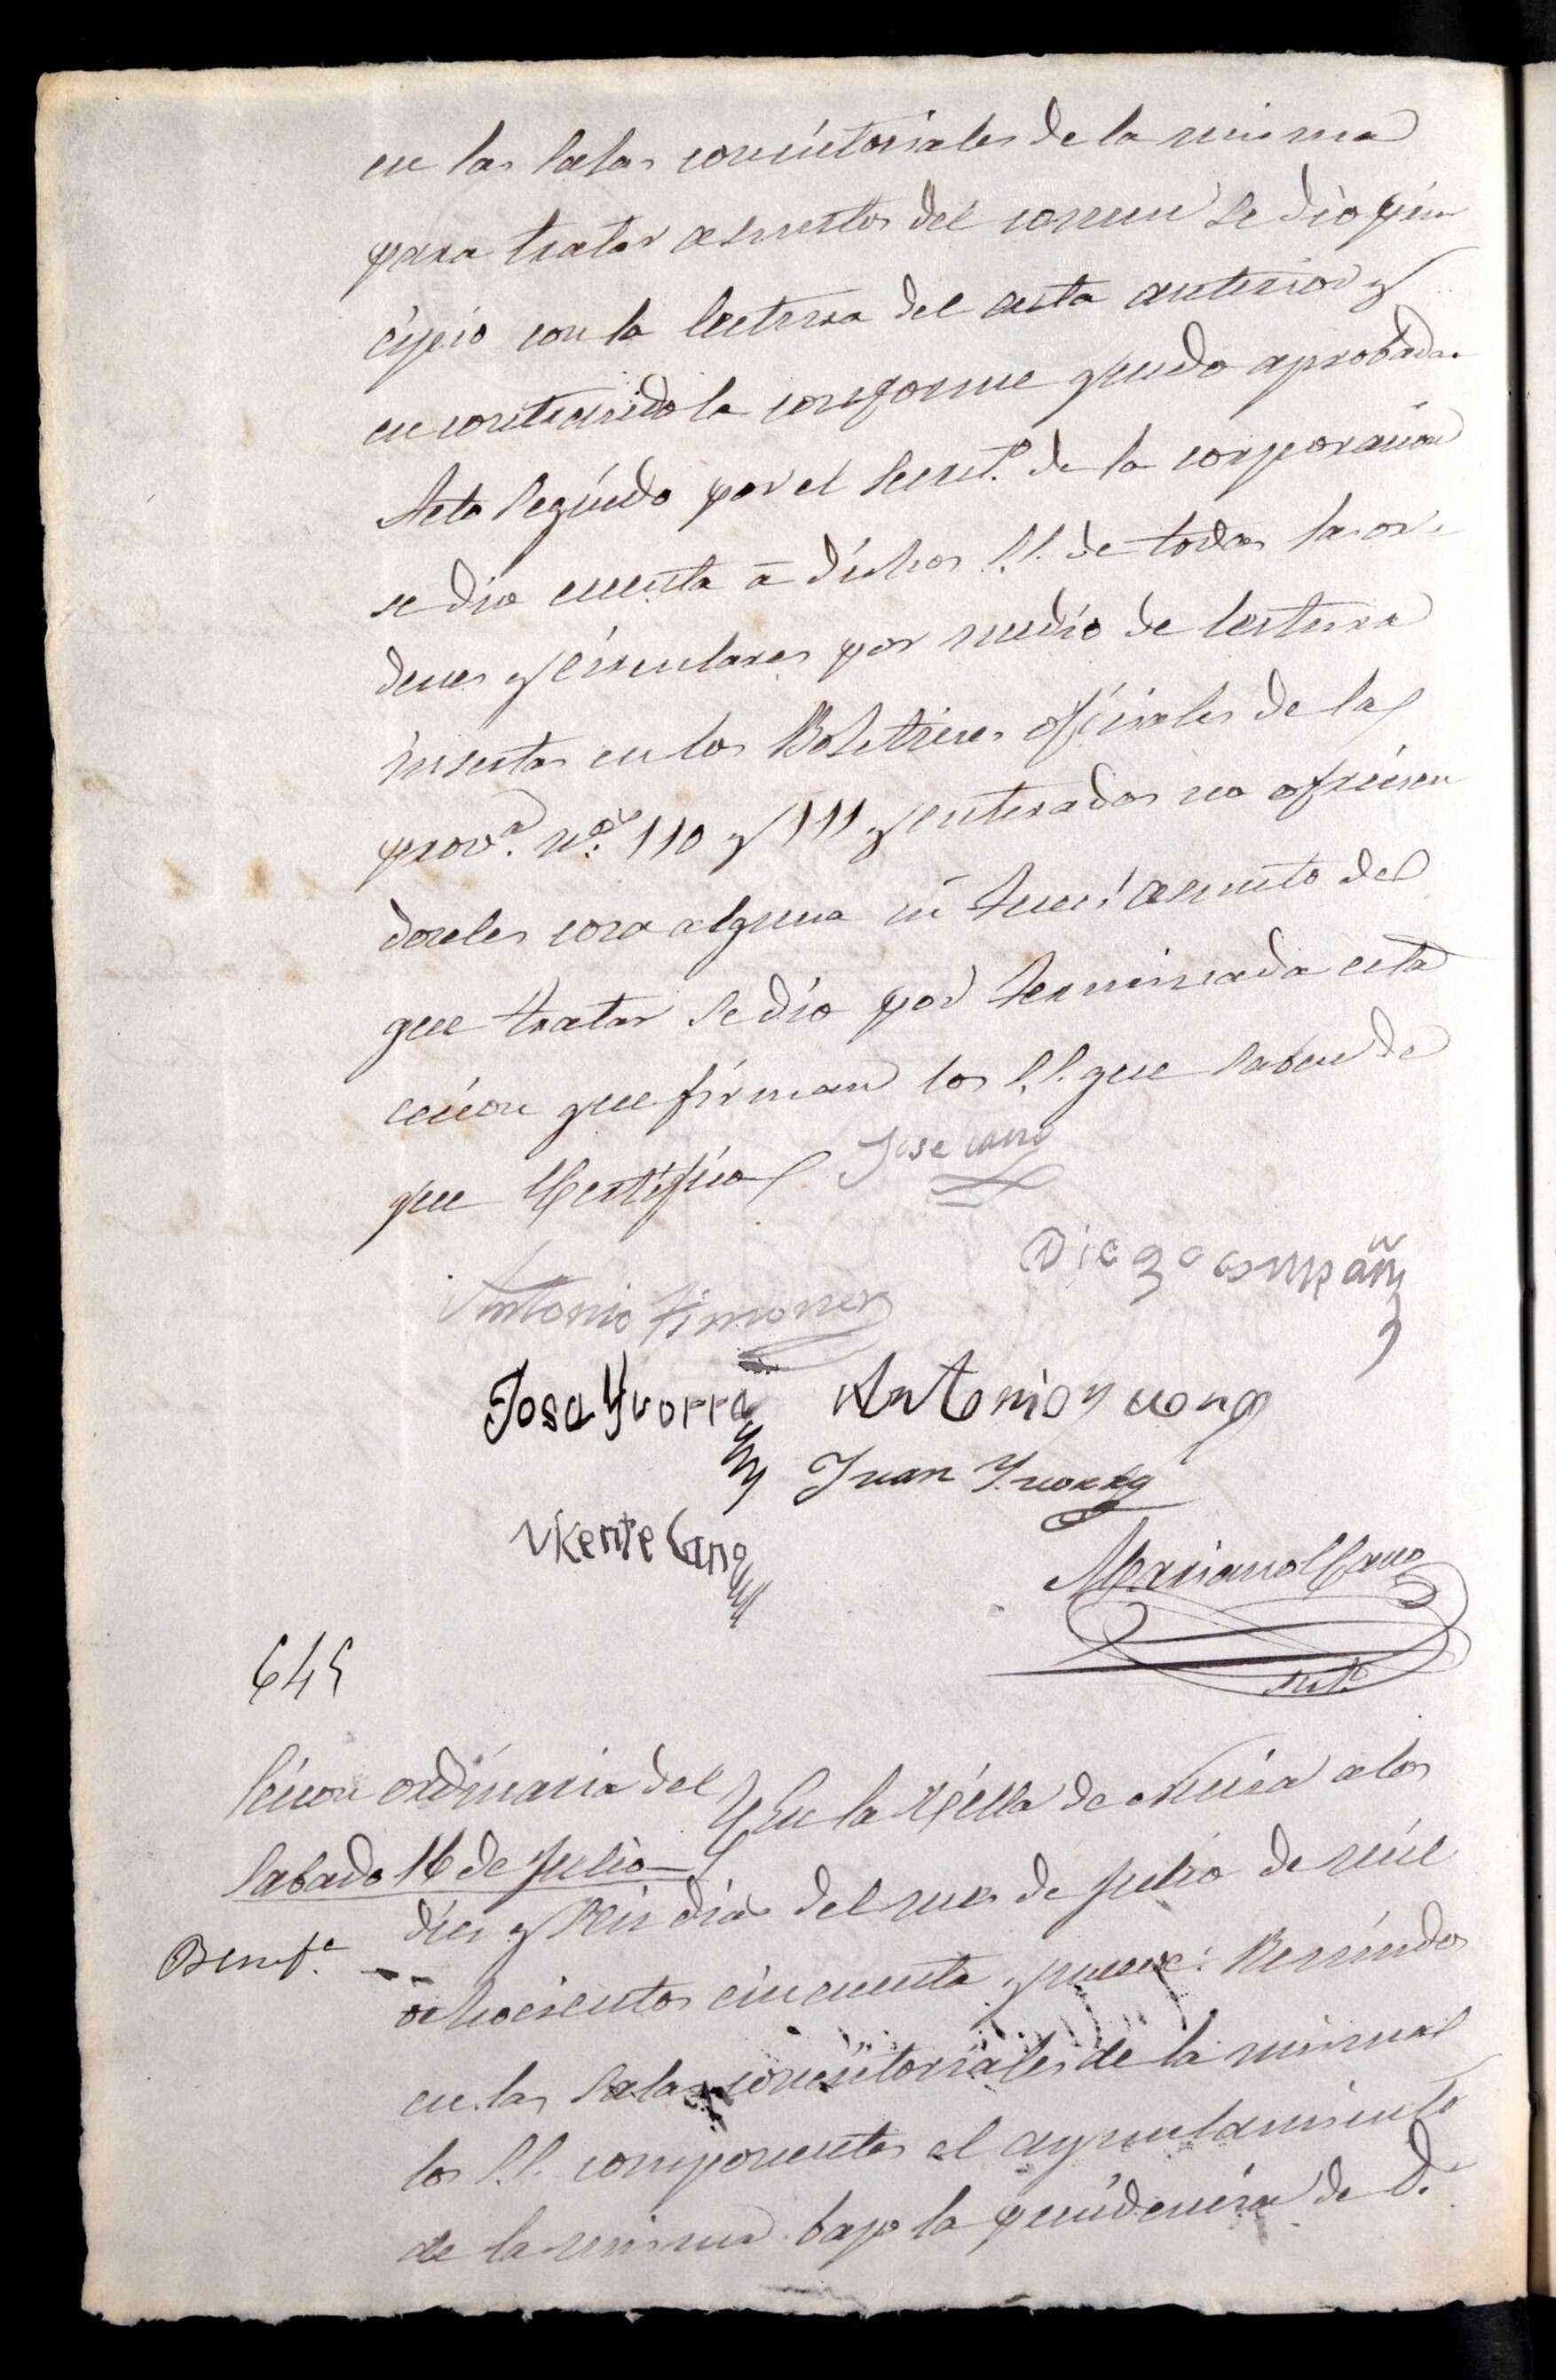 en las Salas concistoriales de la misma
para tratar asuntos del comun se dio prin
cipio con la lectura del acta anterior y
encontrandola conforme quedo aprobada.
Acto Seguido por el Secret.º de la corporacion
se dio cuenta a dichos S.S. de todas las or-
denes y circulares por medio de lectura
insertas en los Boletines oficiales de la
prov.ª n.os 110 y 111 y enterados no ofrecien
doseles cosa alguna ni tener asunto del
que tratar se dio por terminada esta
cecion que firman los S.S. que saben de
que Certifico
Jose cano
Diego compañ
Antonio Ximenez
Jose Yvorra
Antonio
Juan Yvorra
Vicente Cano
Mariano Cano
Srio.
645
Secion ordinaria del
Sabado 16 de Julio
En la Villa de Nucia a los
diez y Seis dias del mes de Julio de mil
Benf.ª
ochocientos cincuenta y nueve: Reunidos
en las Salas concistoriales de la misma
los S.S. componentes el ayuntamiento
de la misma bajo la precidencia de D.